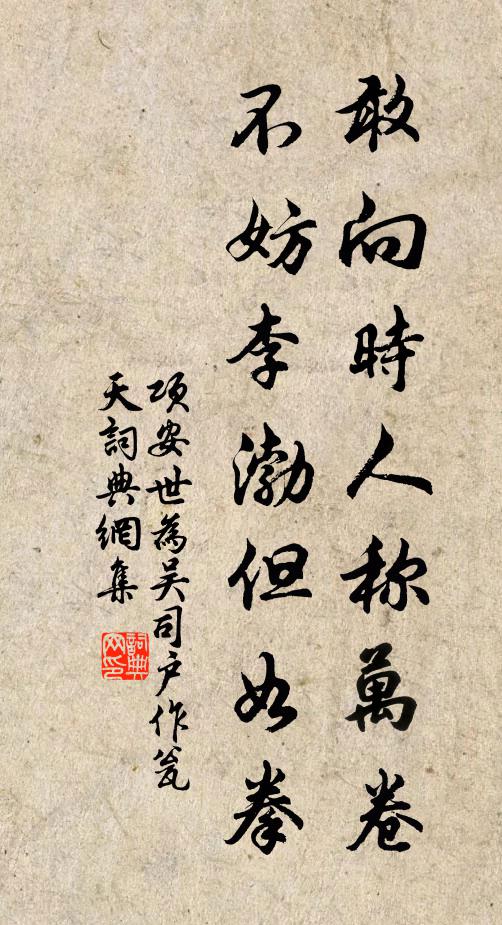 敢向時人称萬卷
不妨李渤但如拳
項安世為吳司户作瓮
天詞典網集
詞典网印